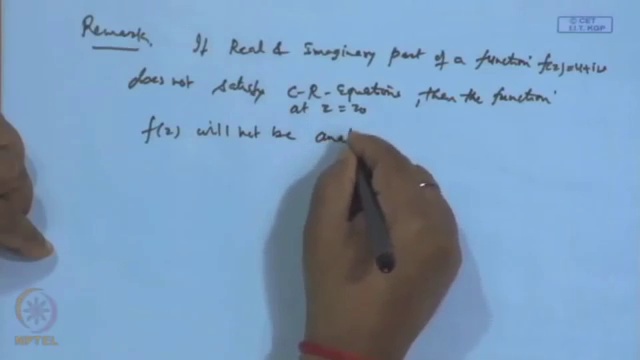 Remark. If Real & Imaginary part of a function f(z)=u+iv
does not satisfy C-R-Equations, then the function
at z=z0
f(z) will not be anal
© CET
I.I.T. KGP
NPTEL